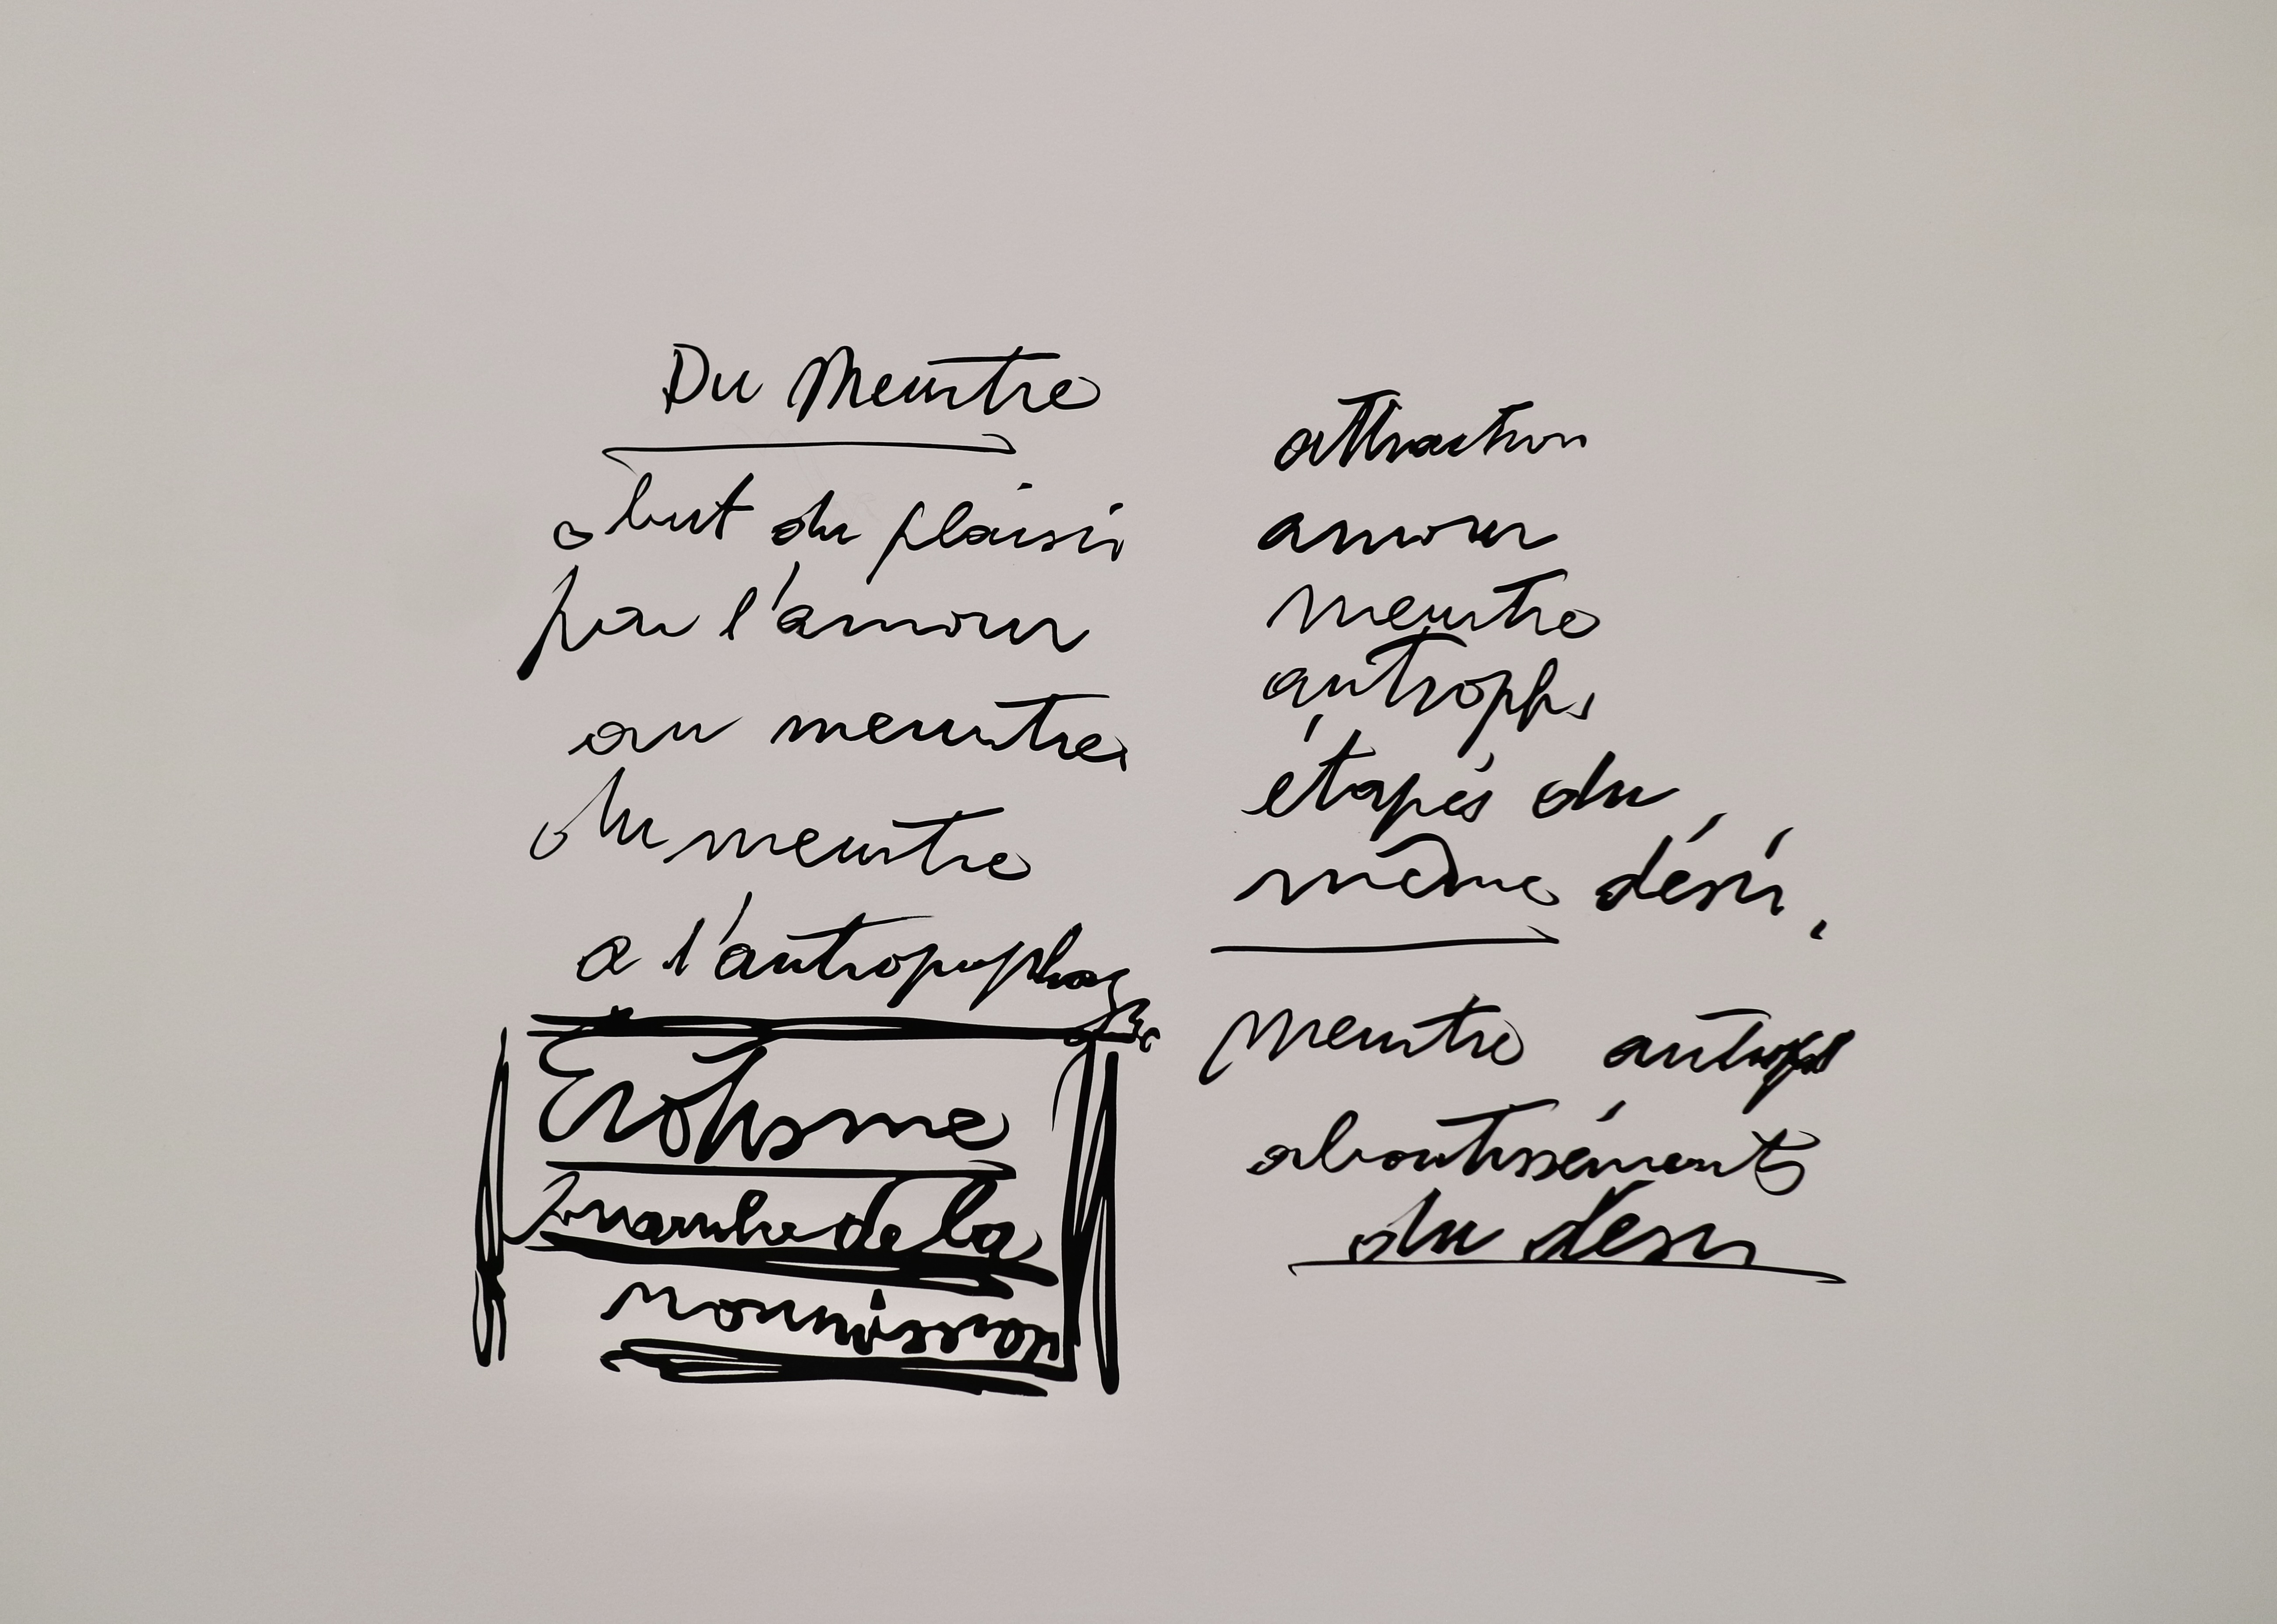 Du Meurtre
but du plaisir
par l'amour
au meurtre
du meurtre
a l'antropophag
Erotisme
de la
attraction
amour
meurtre
antroph
étapes du
même désir,
Meurtre
aboutissement
du désir